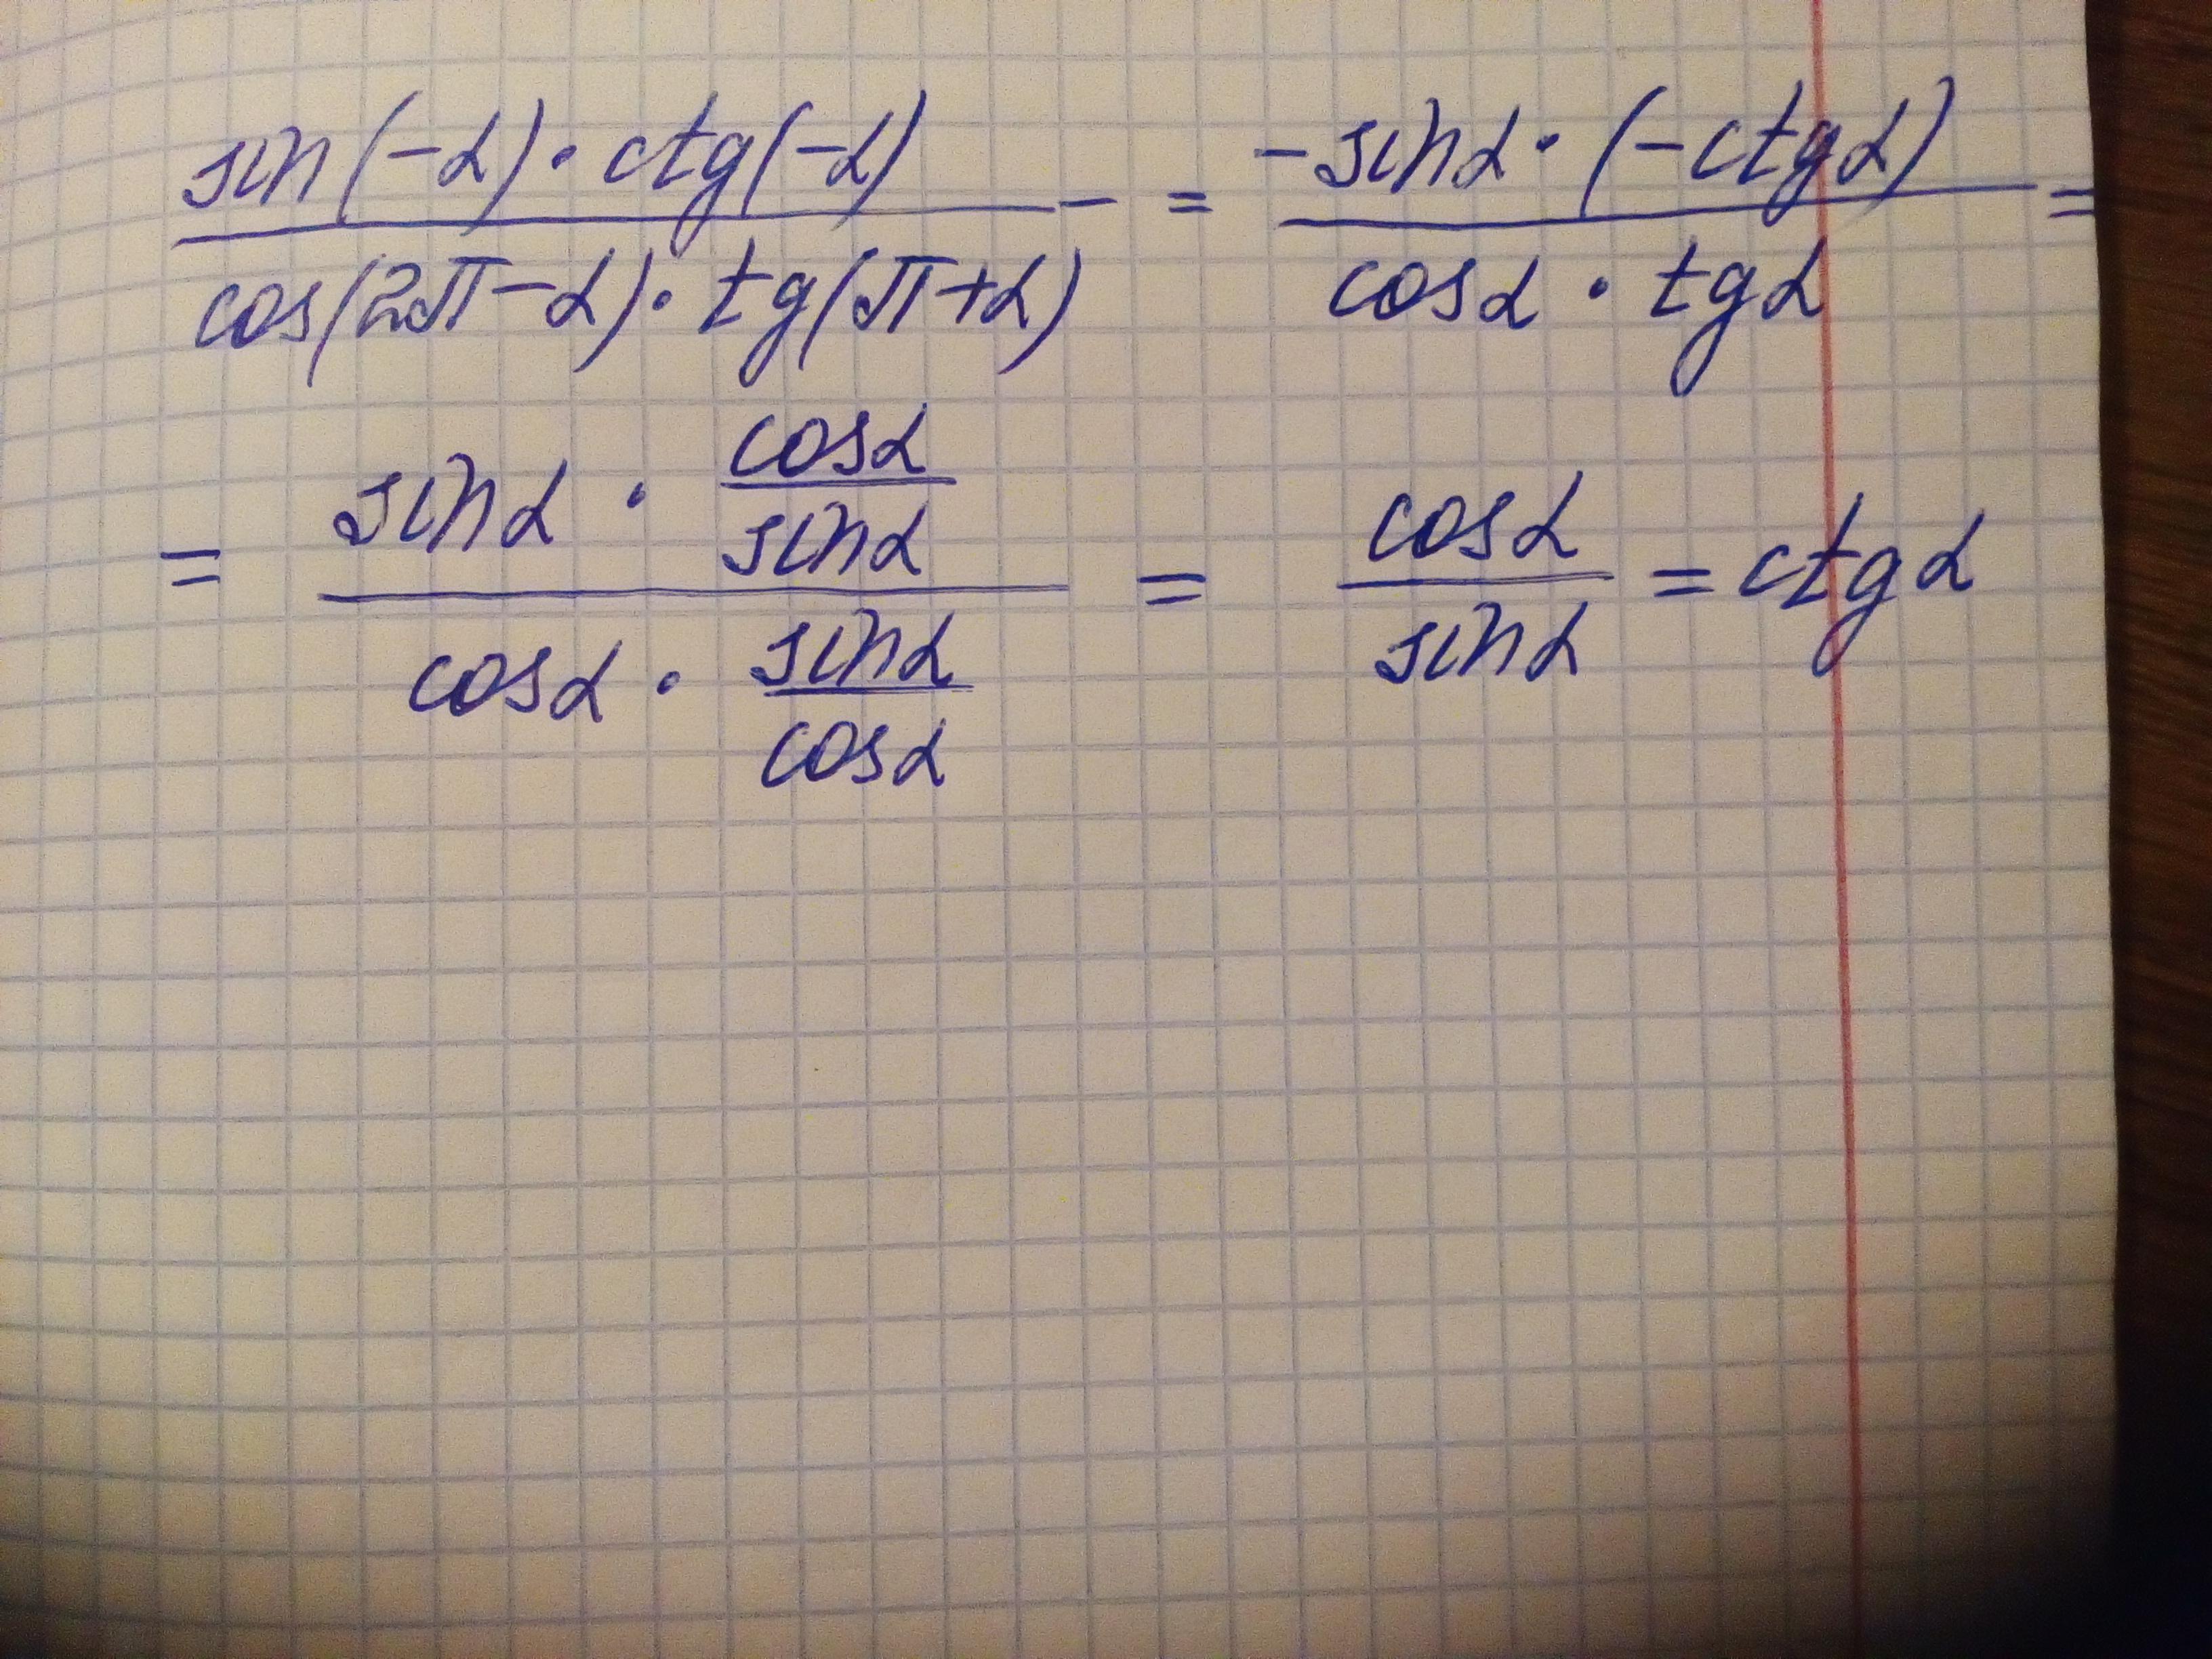 sin(-α)·ctg(-α) / cos(2π-α)·tg(π+α) = -sinα·(-ctgα) / cosα·tgα =
= sinα · cosα/sinα / cosα · sinα/cosα = cosα/sinα = ctgα